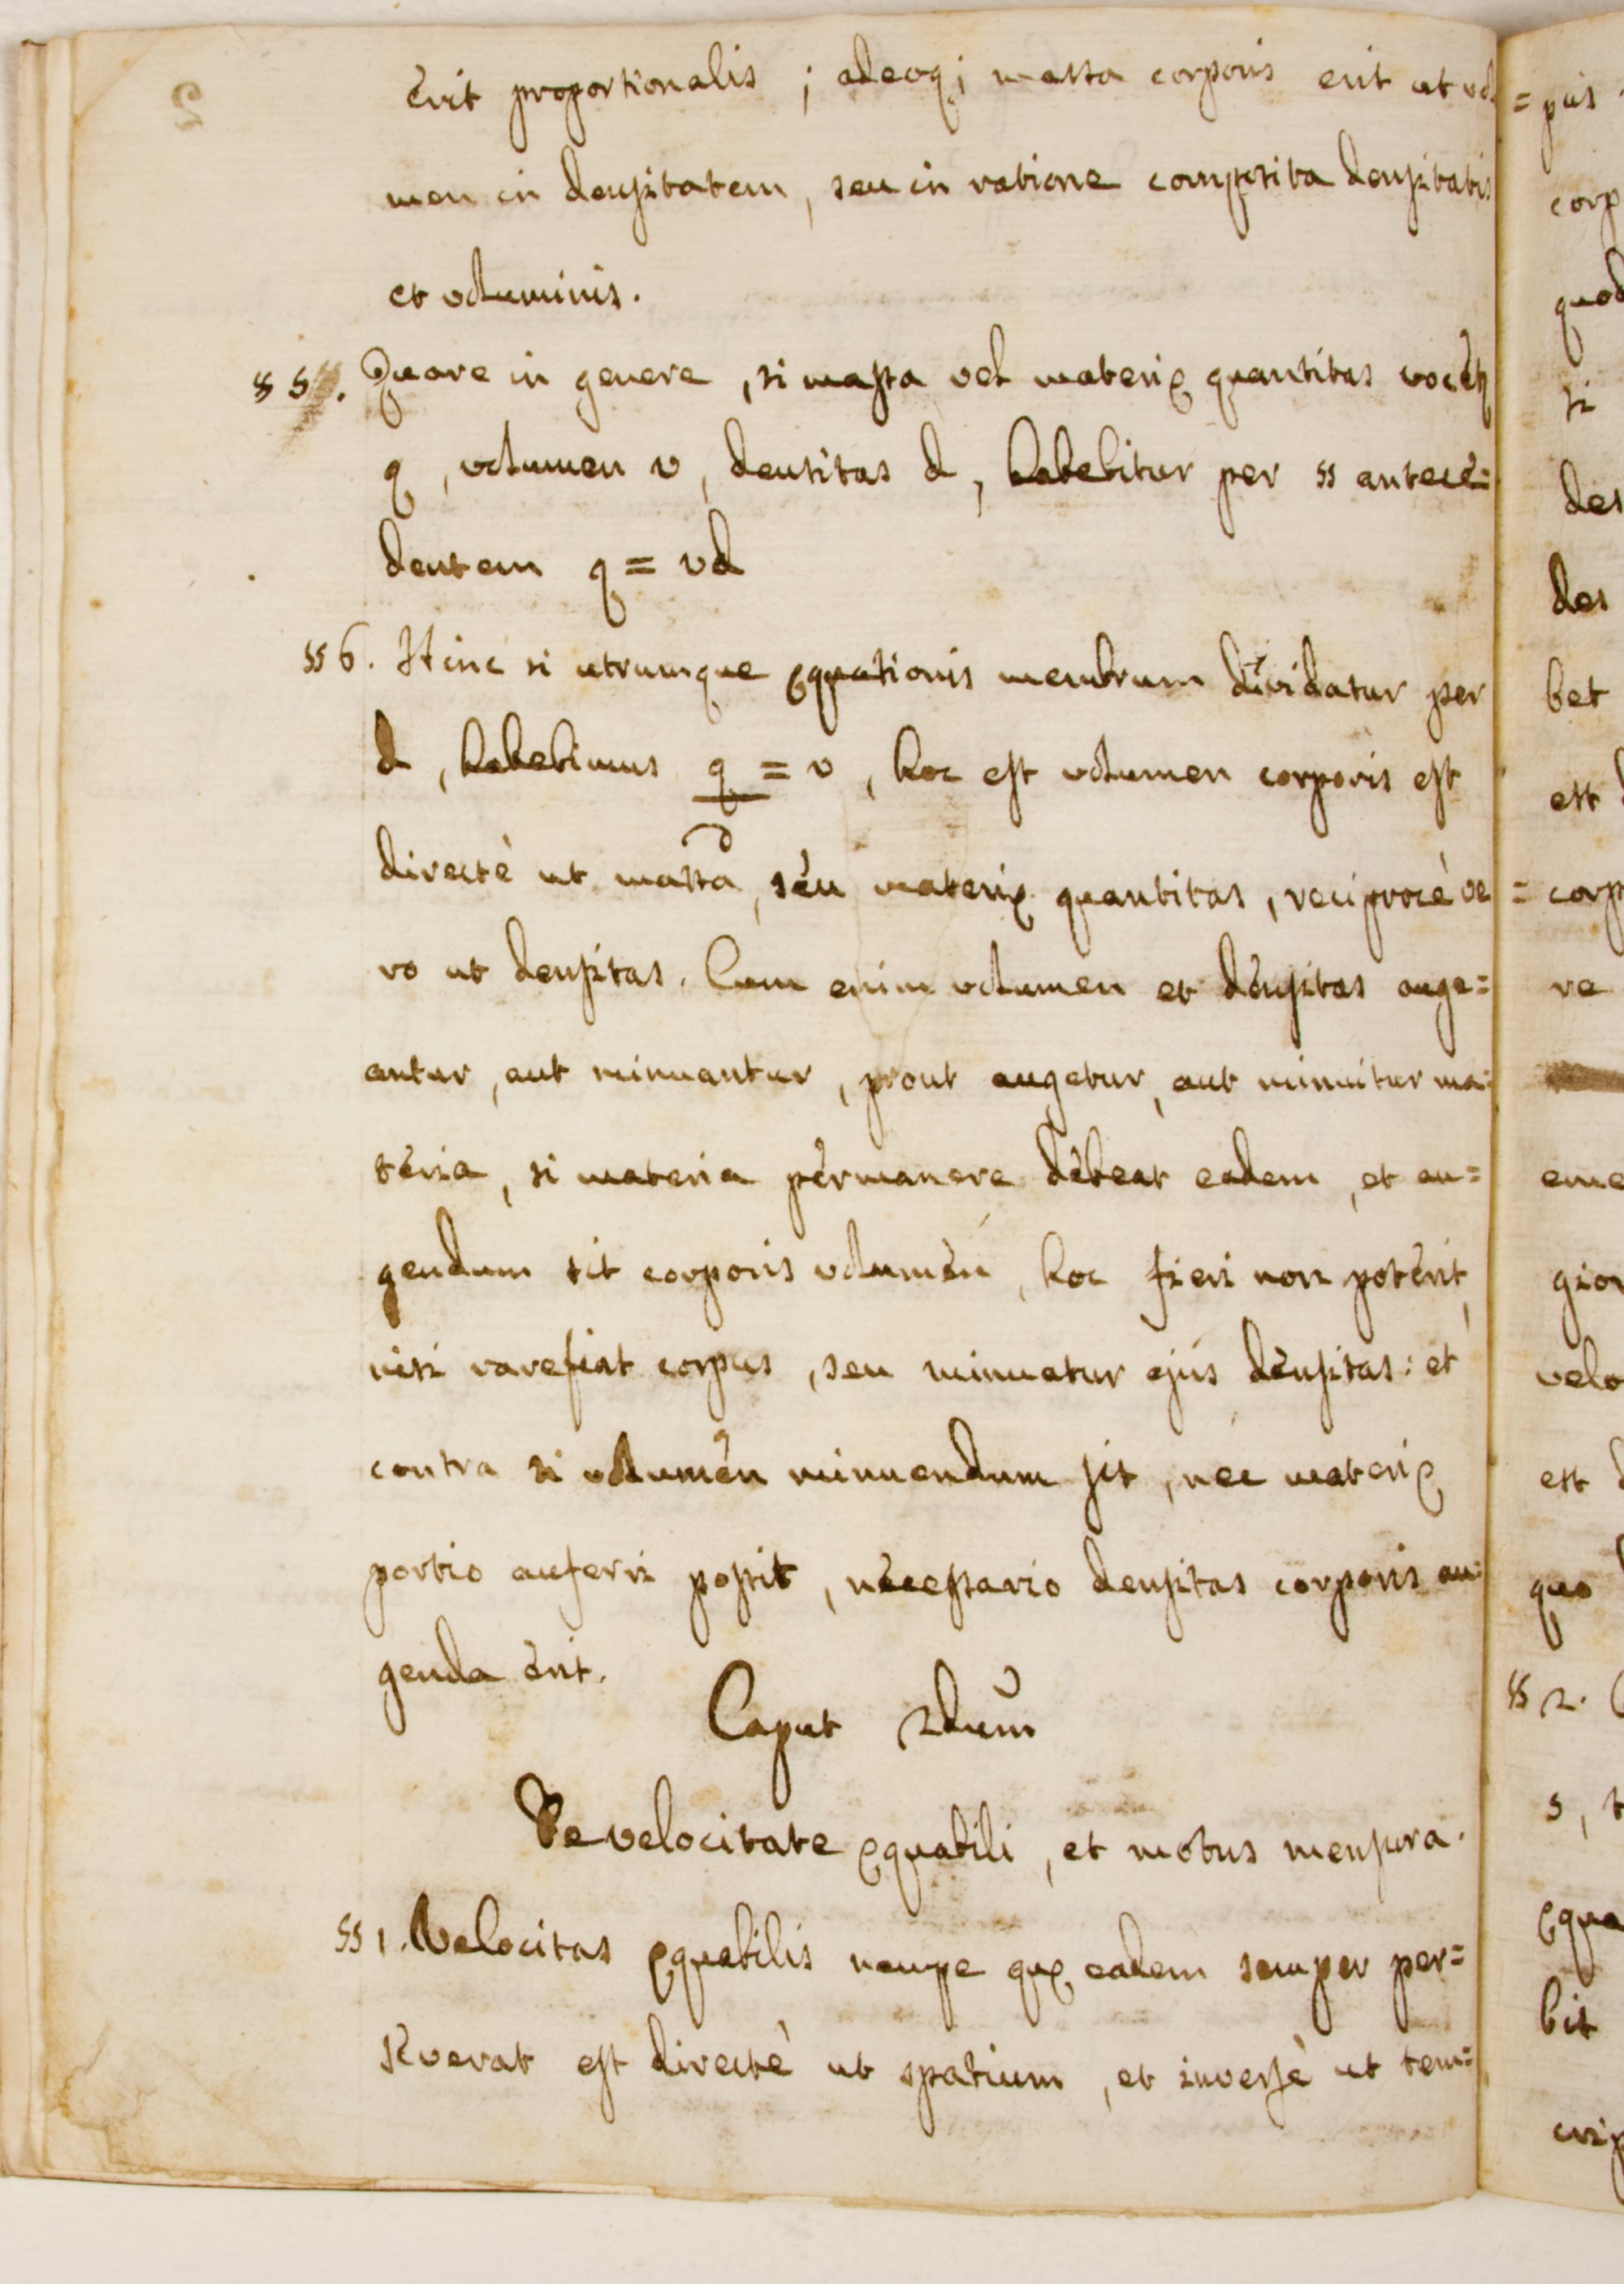 erit proportionalis ; adeoq; massa corporis erit ut volu
men in densitatem, seu in ratione composita densitatis
et voluminis.
§ 5. Quare in genere, si massa vel materię quantitas vocet͛
q, volumen v, densitas d, habebitur per §§ antece=
dentem q = vd
§§ 6. Hinc si utrumque ęquationis membrum dividatur per
d, habebimus q = v, hoc est volumen corporis est
d
directè ut massa, seu materię quantitas, reciprocè ve=
ro ut densitas. Cum enim volumen et densitas auge=
antur, aut minuantur, prout augetur, aut minuitur ma=
teria, si materia permanere debeat eadem, et au=
gendum sit corporis volumen, hoc fieri non poterit,
nisi rarefiat corpus, seu minuatur ejus densitas: et
contra si volumen minuendum sit, nec materię
portio auferri possit, necessario densitas corporis au=
genda erit.
Caput 2dum
De velocitate ęquabili, et motus mensura.
§§ 1. Velocitas ęquabilis nempe quę eadem semper per=
severat est directè ut spatium, et inversè ut tem=
pus
corp
quod
si
des
des
bet
est
corp
re
eme
gion
velo
est
quo
§§ 2.
s, t
ęqua
bit
2